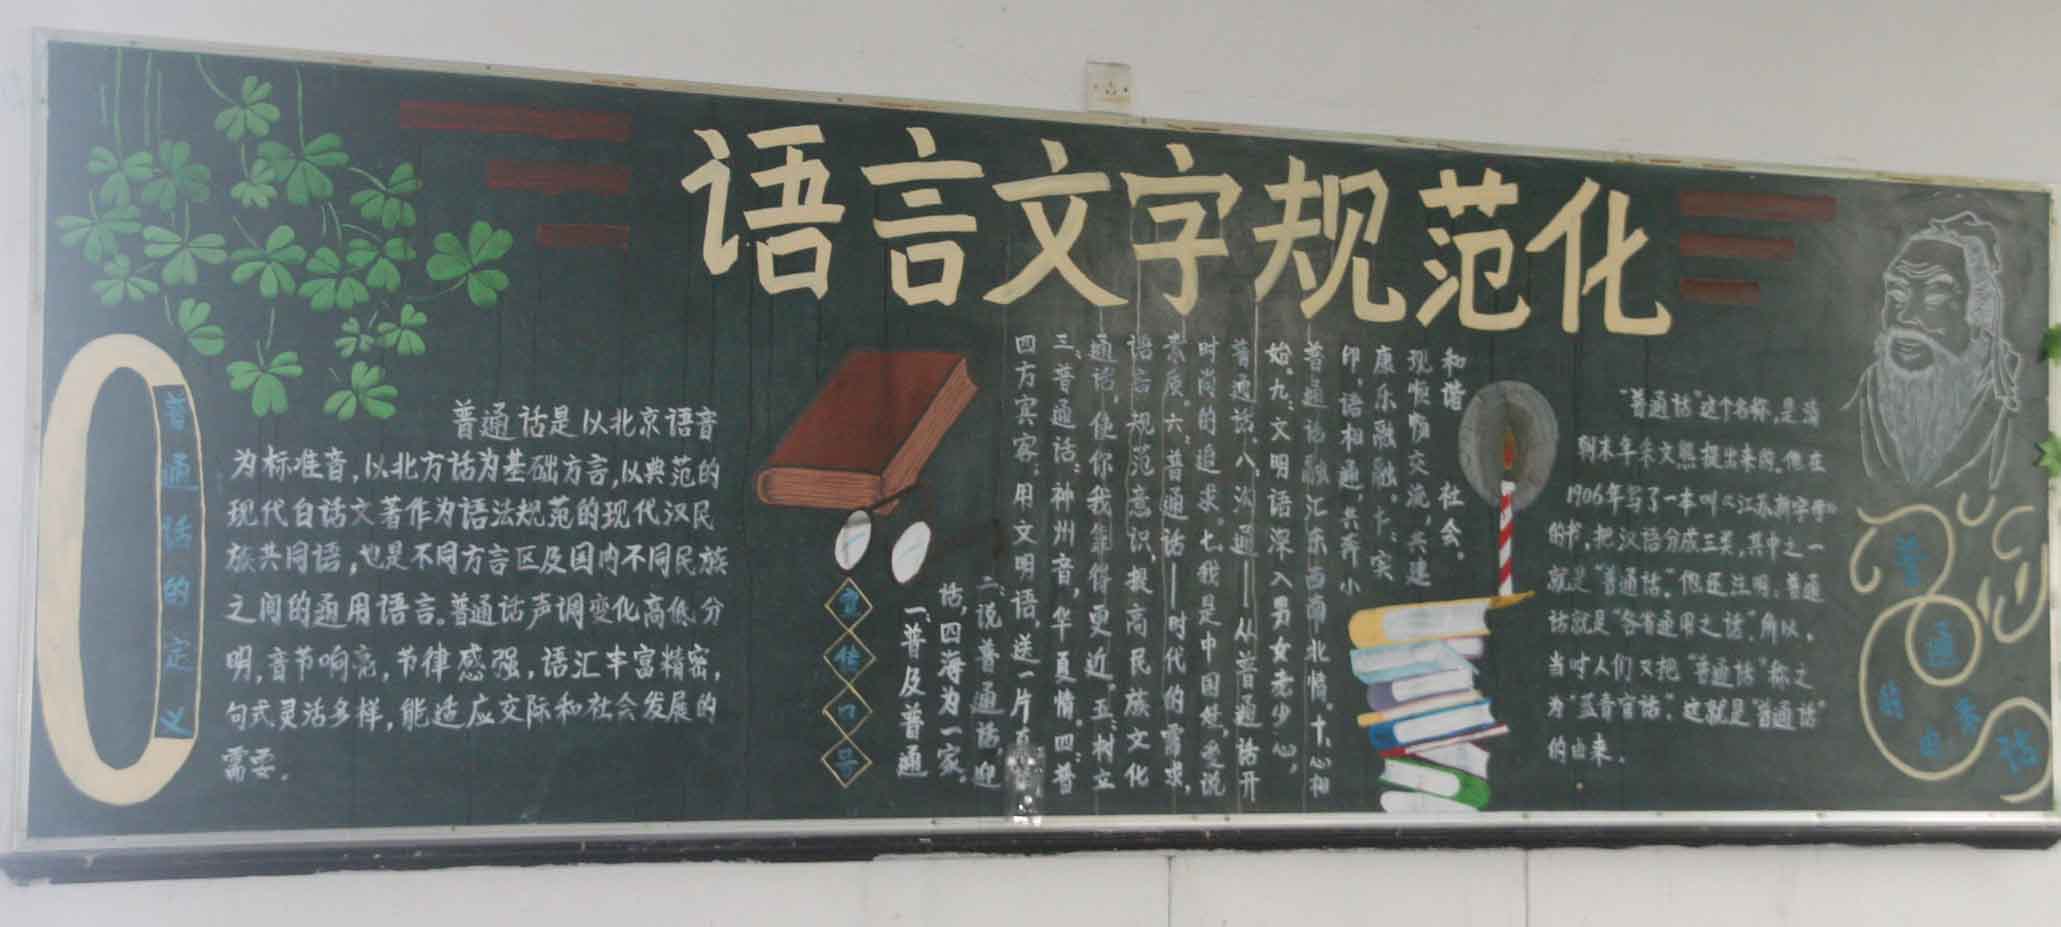 语言文字规范化
普通话的定义
普通话是以北京语音
为标准音,以北方话为基础方言,以典范的
现代白话文著作为语法规范的现代汉民
族共同语,也是不同方言区及国内不同民族
之间的通用语言。普通话声调变化高低分
明,音节响亮,节律感强,语汇丰富精密,
句式灵活多样,能适应交际和社会发展的
需要。
宣传口号
一、普及普通
话,四海为一家。
二、说普通话,迎
四方宾客;用文明语,送一片
三:普通话:神州音,华夏情。四:普
通话,使你我靠得更近。五:树立
语言规范意识,提高民族文化
素质。六:普通话——时代的需求,
时尚的追求。七:我是中国娃,爱说
普通话。八:沟通——从普通话开
始。九:文明语深入男女老少心,
普通话融汇东西南北情。十:心相
印,语相通,共奔小
康乐融融。十:实
现顺畅交流,共建
和谐社会。
“普通话”这个名称,是清
朝末年朱文熊提出来的。他在
1906年写了一本叫《江苏新字母》
的书,把汉语分成三类,其中之一
就是“普通话”。他还注明:普通
话就是“各省通用之话”。所以,
当时人们又把“普通话”称之
为“蓝青官话”。这就是“普通话”
的由来。
普通话的由来